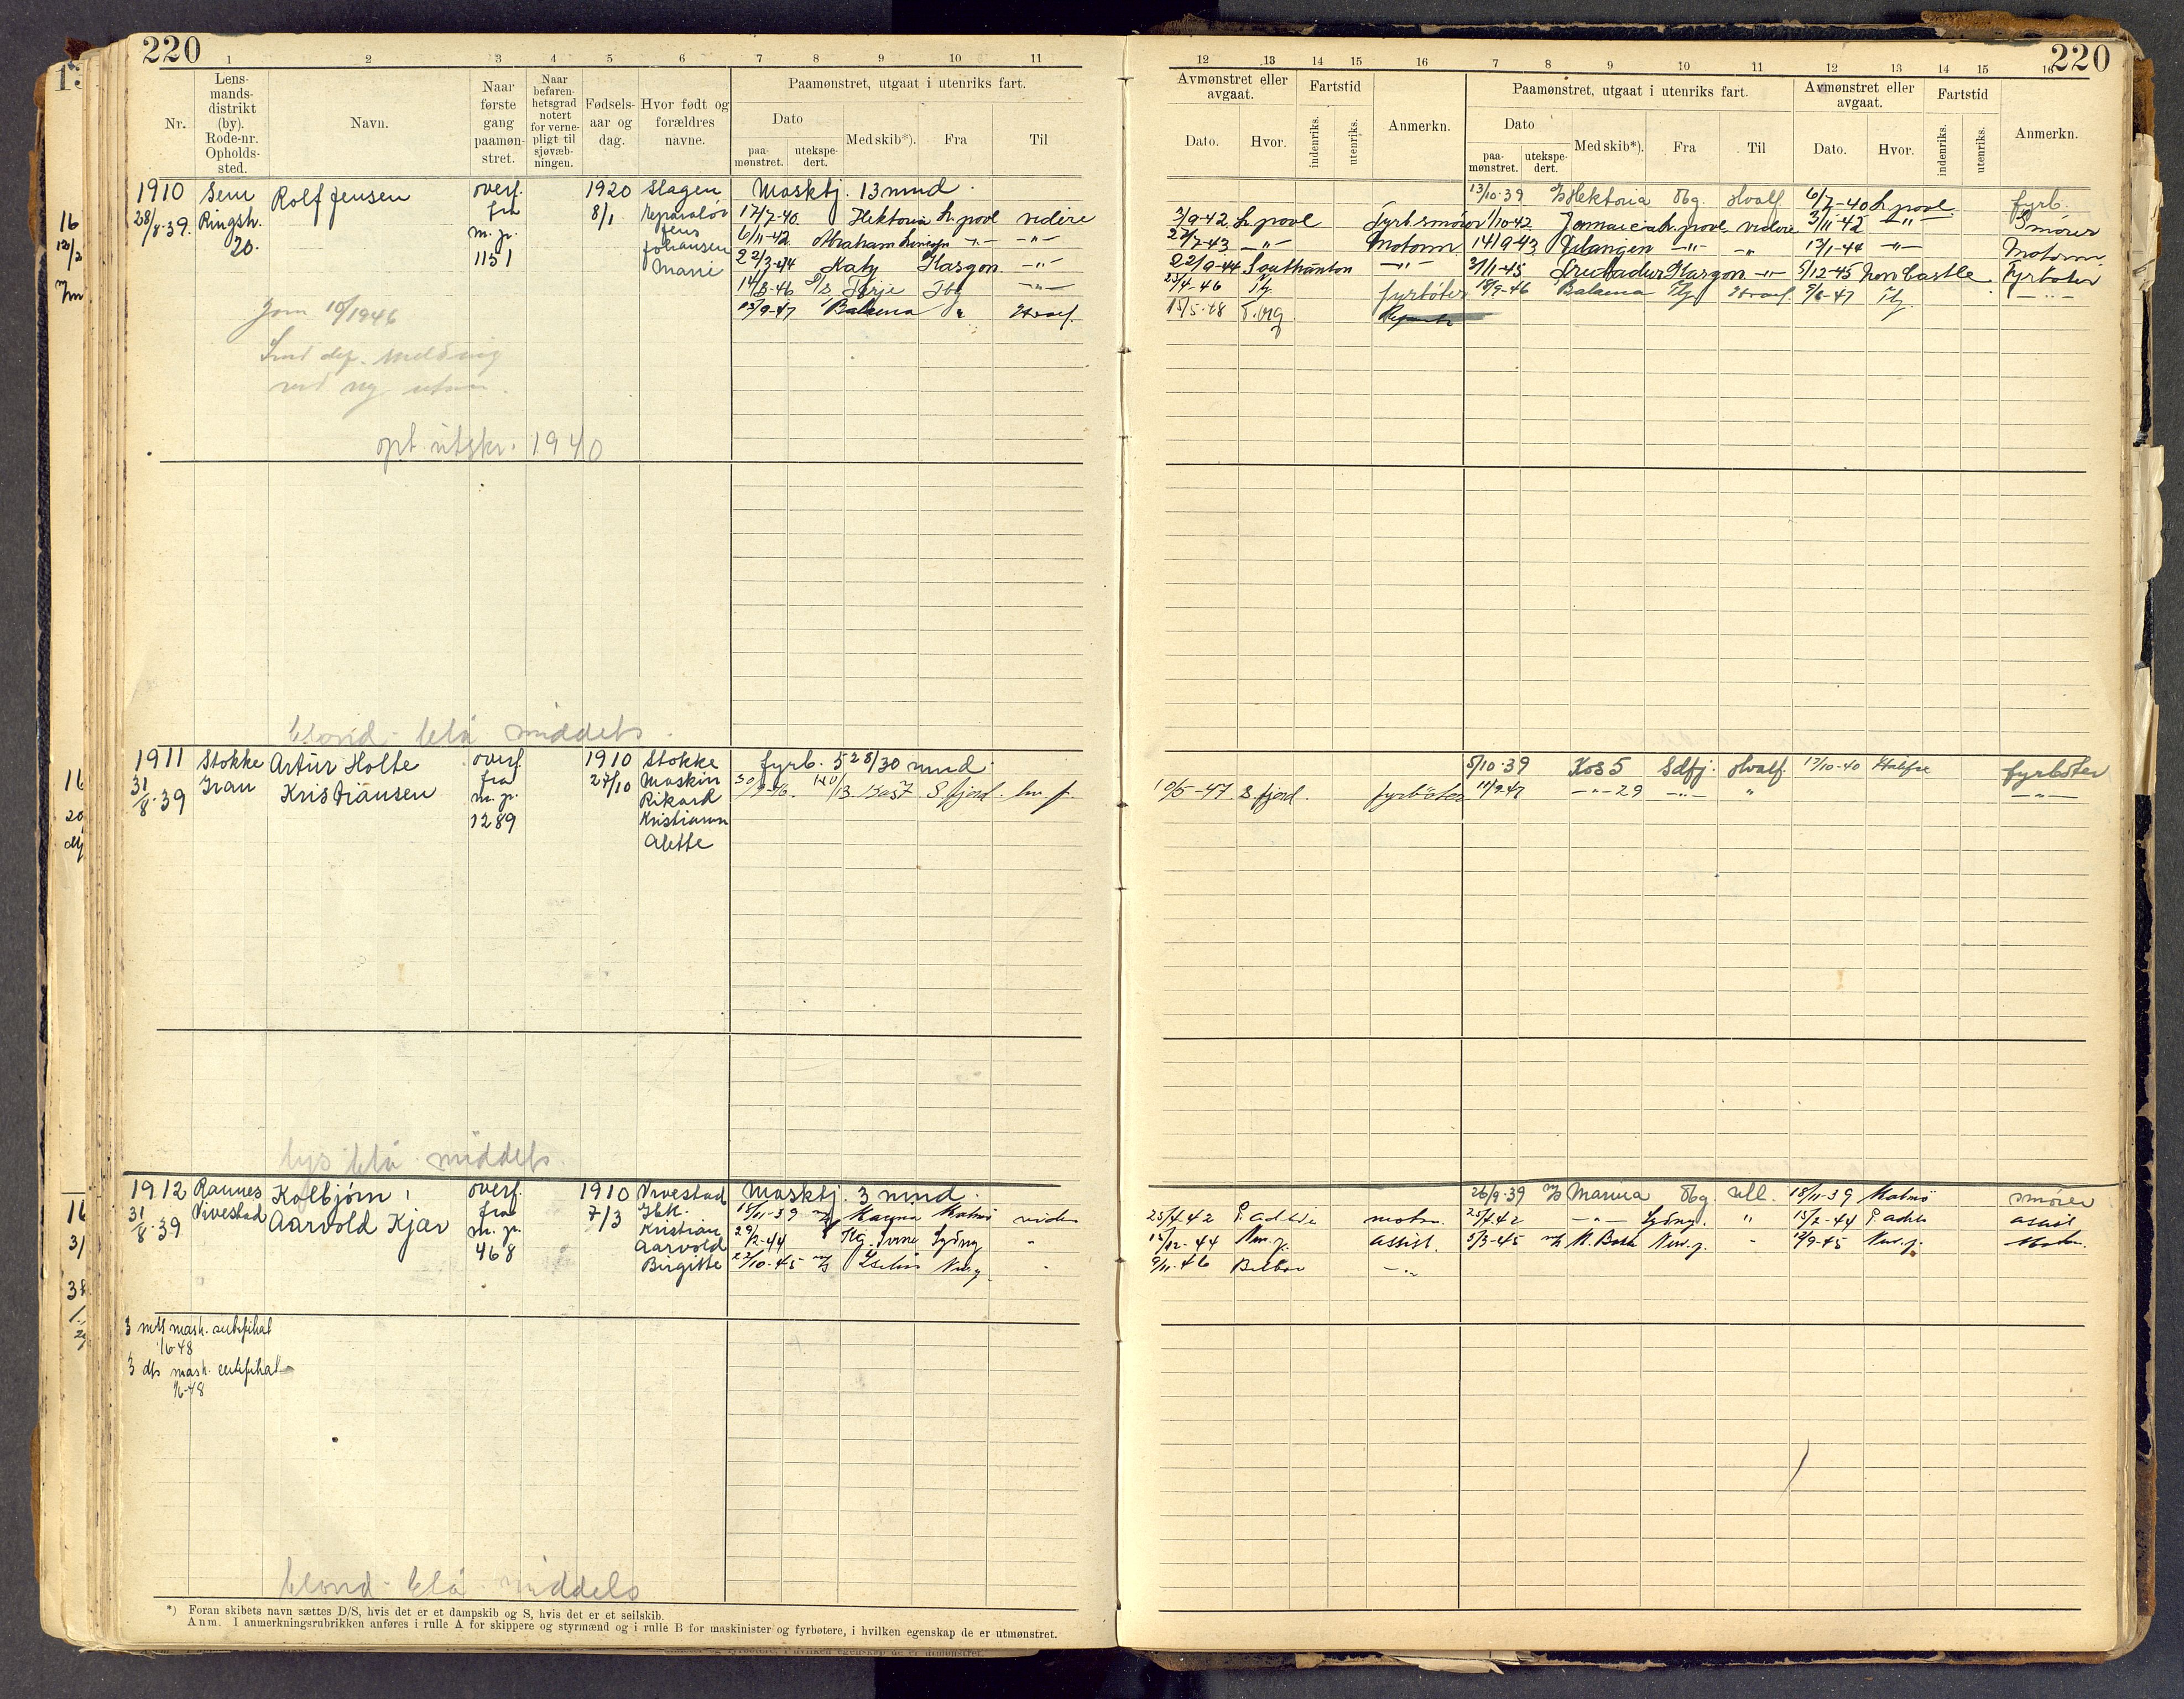 220
1 2 3 4 5 6 7 8 9 10 11
Nr.
Lens-
mands-
distrikt
(by).
Rode-nr.
Opholds-
sted.
Navn.
Naar
første
gang
paamøn-
stret.
Naar
befaren-
hetsgrad
notert
for verne-
pligt til
sjøvæb-
ningen.
Fødsels-
aar og
dag.
Hvor født og
forældres
navne.
Paamønstret, utgaat i utenriks fart.
Dato
paa-
mønstret.
utekspe-
dert.
Med skib*).
Fra
Til
1910 Sem Rolf Jensen overf. 1920 Slagen Maskbj. 13 mnd.
28/8-39. Ringsh. fra 8/1 Reparatør 17/7-40. Hektoria L.pool videre
20. m. p. Jens 6/11-42 Abraham Lincoln -"- -"-
1151 Johansen 22/3-44 Katy Glasgow -"-
Marie 14/3-46 D/S Terje Tbg -"-
13/9-47 Balaena " Hvalf.
Jorn 10/1946
Send dep. melding
ved ny utm.
opt. utskr. 1940
blond - blå middels
1911 Stokke Artur Holte overf. 1910 Stokke fyrb. 5 28/30 mnd.
31/8-39 Gran Kristiansen fra 27/10 Maskin Kos 7 S.fjord.
m. p. Rikard
1289 Kristiansen
Alette
lys blå middels
1912 Ramnes Kolbjørn overf. 1910 Vivestad Maskbj. 3 mnd.
31/8-39 Vivestad Aarvold Kjær fra 7/3 Gbk. 18/11-39 Manna Malmö videre
m. p. Kristian 29/2-44 Sydny "
468 Aarvold 22/10-45
Birgitte
3 mdS mask. sertifikat
1/6-48
3 dts mask. certifikat
1/6-48
blond - blå - middels
*) Foran skibets navn sættes D/S, hvis det er et dampskib og S, hvis det er et seilskib.
Anm. I anmerkningsrubrikken anføres i rulle A for skippere og styrmænd og i rulle B for maskinister og fyrbøtere, i hvilken egenskap de er utmønstret.
12 13 14 15 16 7 8 9 10 11 12 13 14 15 16
220
Avmønstret eller
avgaat.
Dato.
Hvor.
Fartstid
indenriks.
utenriks.
Anmerkn.
Paamønstret, utgaat i utenriks fart.
Dato
paa-
mønstret.
utekspe-
dert.
Med skib*).
Fra
Til
Avmønstret eller
avgaat.
Dato.
Hvor.
Fartstid
indenriks.
utenriks.
Anmerkn.
13/10-39 Hektoria Tbg. Hvalf. 6/7-40 L.pool. fyrb.
3/9-42 L.pool fyrb.smører 1/10-42 Jamaica L.pool videre 3/11-42 -"- Smører
27/7-43 -"- Motorm. 14/9-43 Elangen -"- " 17/1-44 -"- Motorm.
22/9-44 Southamton -"- 3/11-45 Glasgow -"- 5/12-45 New Castle fyrbøter
25/4-46 Tbg. fyrbøter 18/9-46 Balaena Tbg Hvalf. 9/6-47 Tbg. -"-
15/5-48 T.brg
5/10-39 Kos 5 Sdfj. Hvalf. 17/10-40 Halifax fyrbøter
10/5-47. S.fjord. fyrbøter 11/9-47 -"- 29 -"- " -"-
26/9-39 Manna Tbg. utl. 18/11-39 Malmö smører
25/4-42 P. adelaide motm. 25/4-42 -"- Sydny. " 15/2-44 P. adel. assist
15/12-44 New.p. assist. 5/3-45 M. Bakke New.p. " 12/9-45 New.p. Motm.
9/11-46 Bilbao -"-